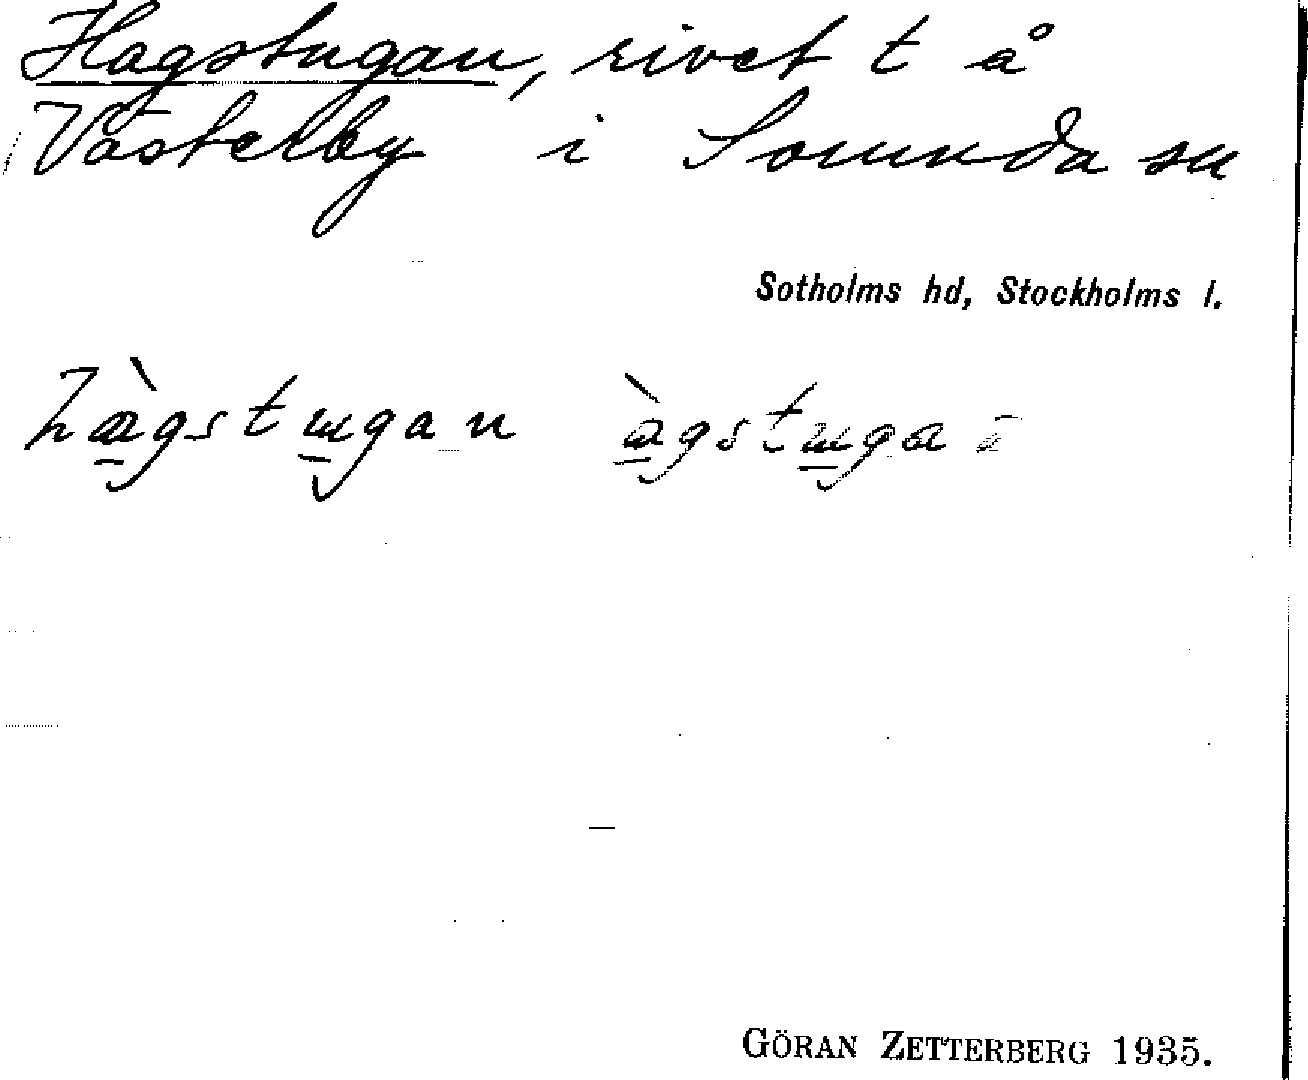 Hagstugan, rivet t å
Västerby i Sorunda sn
Sotholms hd, Stockholms l.
hàgstugan àgstuga
GÖRAN ZETTERBERG 1935.